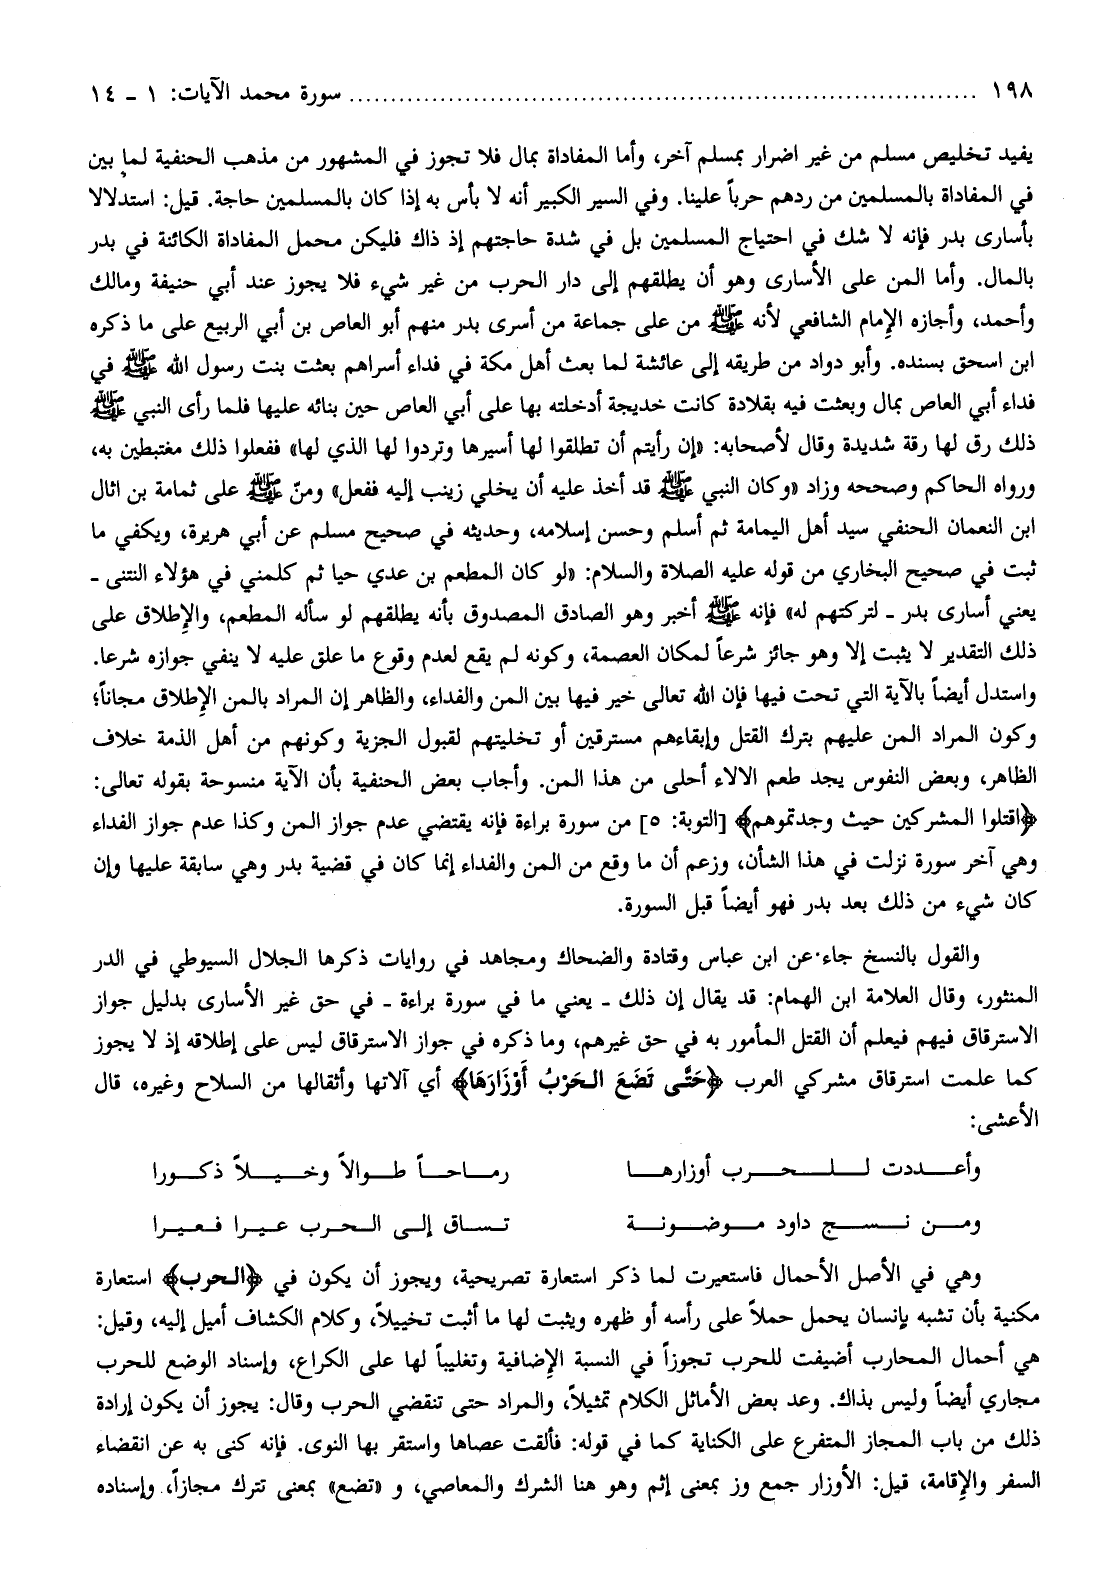 ١٩٨ ........................................................................ سورة محمد الآيات: ١ - ١٤
يفيد تخليص مسلم من غير اضرار بمسلم آخر، وأما المفاداة بمال فلا تجوز في المشهور من مذهب الحنفية لما بين
في المفاداة بالمسلمين من ردهم حرباً علينا. وفي السير الكبير أنه لا بأس به إذا كان بالمسلمين حاجة. قيل: استدلالا
بأسارى بدر فإنه لا شك في احتياج المسلمين بل في شدة حاجتهم إذ ذاك فليكن محمل المفاداة الكائنة في بدر
بالمال. وأما المن على الأسارى وهو أن يطلقهم إلى دار الحرب من غير شيء فلا يجوز عند أبي حنيفة ومالك
وأحمد، وأجازه الإمام الشافعي لأنه ﷺ من على جماعة من أسرى بدر منهم أبو العاص بن أبي الربيع على ما ذكره
ابن اسحق بسنده. وأبو دواد من طريقه إلى عائشة لما بعث أهل مكة في فداء أسراهم بعثت بنت رسول الله ﷺ في
فداء أبي العاص بمال وبعثت فيه بقلادة كانت خديجة أدخلته بها على أبي العاص حين بنائه عليها فلما رأى النبي ﷺ
ذلك رق لها رقة شديدة وقال لأصحابه: «إن رأيتم أن تطلقوا لها أسيرها وتردوا لها الذي لها» ففعلوا ذلك مغتبطين به،
ورواه الحاكم وصححه وزاد «وكان النبي ﷺ قد أخذ عليه أن يخلي زينب إليه ففعل» ومنّ ﷺ على ثمامة بن اثال
ابن النعمان الحنفي سيد أهل اليمامة ثم أسلم وحسن إسلامه، وحديثه في صحيح مسلم عن أبي هريرة، ويكفي ما
ثبت في صحيح البخاري من قوله عليه الصلاة والسلام: «لو كان المطعم بن عدي حيا ثم كلمني في هؤلاء النتنى -
يعني أسارى بدر - لتركتهم له» فإنه ﷺ أخبر وهو الصادق المصدوق بأنه يطلقهم لو سأله المطعم، والإطلاق على
ذلك التقدير لا يثبت إلا وهو جائز شرعاً لمكان العصمة، وكونه لم يقع لعدم وقوع ما علق عليه لا ينفي جوازه شرعا.
واستدل أيضاً بالآية التي تحت فيها فإن الله تعالى خير فيها بين المن والفداء، والظاهر إن المراد بالمن الإطلاق مجاناً؛
وكون المراد المن عليهم بترك القتل وإبقاءهم مسترقين أو تخليتهم لقبول الجزية وكونهم من أهل الذمة خلاف
الظاهر، وبعض النفوس يجد طعم الالاء أحلى من هذا المن. وأجاب بعض الحنفية بأن الآية منسوحة بقوله تعالى:
﴿اقتلوا المشركين حيث وجدتموهم﴾ [التوبة: ٥] من سورة براءة فإنه يقتضي عدم جواز المن وكذا عدم جواز الفداء
وهي آخر سورة نزلت في هذا الشأن، وزعم أن ما وقع من المن والفداء إنما كان في قضية بدر وهي سابقة عليها وإن
كان شيء من ذلك بعد بدر فهو أيضاً قبل السورة.
والقول بالنسخ جاء عن ابن عباس وقتادة والضحاك ومجاهد في روايات ذكرها الجلال السيوطي في الدر
المنثور، وقال العلامة ابن الهمام: قد يقال إن ذلك - يعني ما في سورة براءة - في حق غير الأسارى بدليل جواز
الاسترقاق فيهم فيعلم أن القتل المأمور به في حق غيرهم، وما ذكره في جواز الاسترقاق ليس على إطلاقه إذ لا يجوز
كما علمت استرقاق مشركي العرب ﴿حَتَّى تَضَعَ الحَرْبُ أَوْزَارَهَا﴾ أي آلاتها وأثقالها من السلاح وغيره، قال
الأعشى:
وأعـــددت للـحــرب أوزارهـا رمـاحـاً طـوالاً وخـيـلاً ذكـورا
ومـن نـسـج داود مـوضـونـة تـسـاق إلى الـحـرب عـيـرا فـعـيـرا
وهي في الأصل الأحمال فاستعيرت لما ذكر استعارة تصريحية، ويجوز أن يكون في ﴿الحرب﴾ استعارة
مكنية بأن تشبه بإنسان يحمل حملاً على رأسه أو ظهره ويثبت لها ما أثبت تخييلاً، وكلام الكشاف أميل إليه، وقيل:
هي أحمال المحارب أضيفت للحرب تجوزاً في النسبة الإضافية وتغليباً لها على الكراع، وإسناد الوضع للحرب
مجازي أيضاً وليس بذاك. وعد بعض الأماثل الكلام تمثيلاً، والمراد حتى تنقضي الحرب وقال: يجوز أن يكون إرادة
ذلك من باب المجاز المتفرع على الكناية كما في قوله: فألقت عصاها واستقر بها النوى. فإنه كنى به عن انقضاء
السفر والإقامة، قيل: الأوزار جمع وز بمعنى إثم وهو هنا الشرك والمعاصي، و «تضع» بمعنى تترك مجازاً، وإسناده